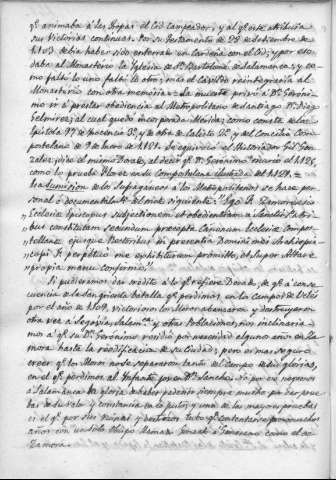 qᵉ animaba á las Tropas del Cid Campeador, y al qᵉ este atribuia
sus Victorias continuas. Por su testamento de 25 de Diciembre de
1103 debia haber sido enterrado en Cardeña con el Cid, y por eso
daba al Monasterio la Iglesia de Sⁿ Bartolomé de Salamanca, y co-
mo faltó lo uno faltó lo otro; mas el Cabildo reintegraria al
Monasterio con otra memoria = La muerte privó á Dⁿ Geróni-
mo ir á prestar obediencia al Metropolitano de Santiago Dⁿ Diego
Gelmirez, al cual quedó incorporada Mérida, como consta de la
Epistola de Inocencio y de otra de Calisto 2º y del Concilio Com-
postelano de Enero de 1121. Se equivocó el Historiador Gil Gon-
zalez, dice el mismo Dorado, al decir qᵉ Dⁿ Gerónimo murió el 1125,
como lo prueba Florez en su Compostelana ilustrada del 1121. =
La sumision de los Sufraganeos á los Metropolitanos se hace per-
sonal ó documentalmᵗᵉ del modo siguiente: "Ego N. Zamorensis
Ecclesiae Episcopus subjectionem et obedientiam a Sanctis Patri-
bus constitutam secundum precepta Canonum Ecclesiae Compos-
tellanae, ejusque Rectoribus in presentia Domini mei Archiepis-
copi N. perpétuo me exhibiturum promitto, et Super Altare
propria manu confirmo."
Si pudieramos dar crédito á lo qᵉ refiere Dorado, de qᵉ á conse-
cuencia de la sangrienta batalla qᵉ perdimos en los Campos de Uclés
por el año de 1109, victoriosos los Moros abanzaron y destruyeron
otra vez á Segovia, Salamᶜᵃ y otras Poblaciones, nos inclinaria-
mos á qᵉ su Dⁿ Gerónimo residió por necesidad algunos años en Za-
mora hasta la reedificacion de su Ciudad; pero es mas seguro
creer qᵉ los Moros no se separaron tanto del Campo de sus glorias,
en el qᵉ perdimos al Infante Joven Dⁿ Sancho. No por eso negamos
á Salamanca la gloria de haber padecido siempre mucho por dar prue-
bas de su valor y constancia en la puta; y una de las mayores pruebas
es el qᵉ por sus ruinas y destrozos tubo qᵉ contentarse por muchos
años con un solo Obispo llamado
Zamora